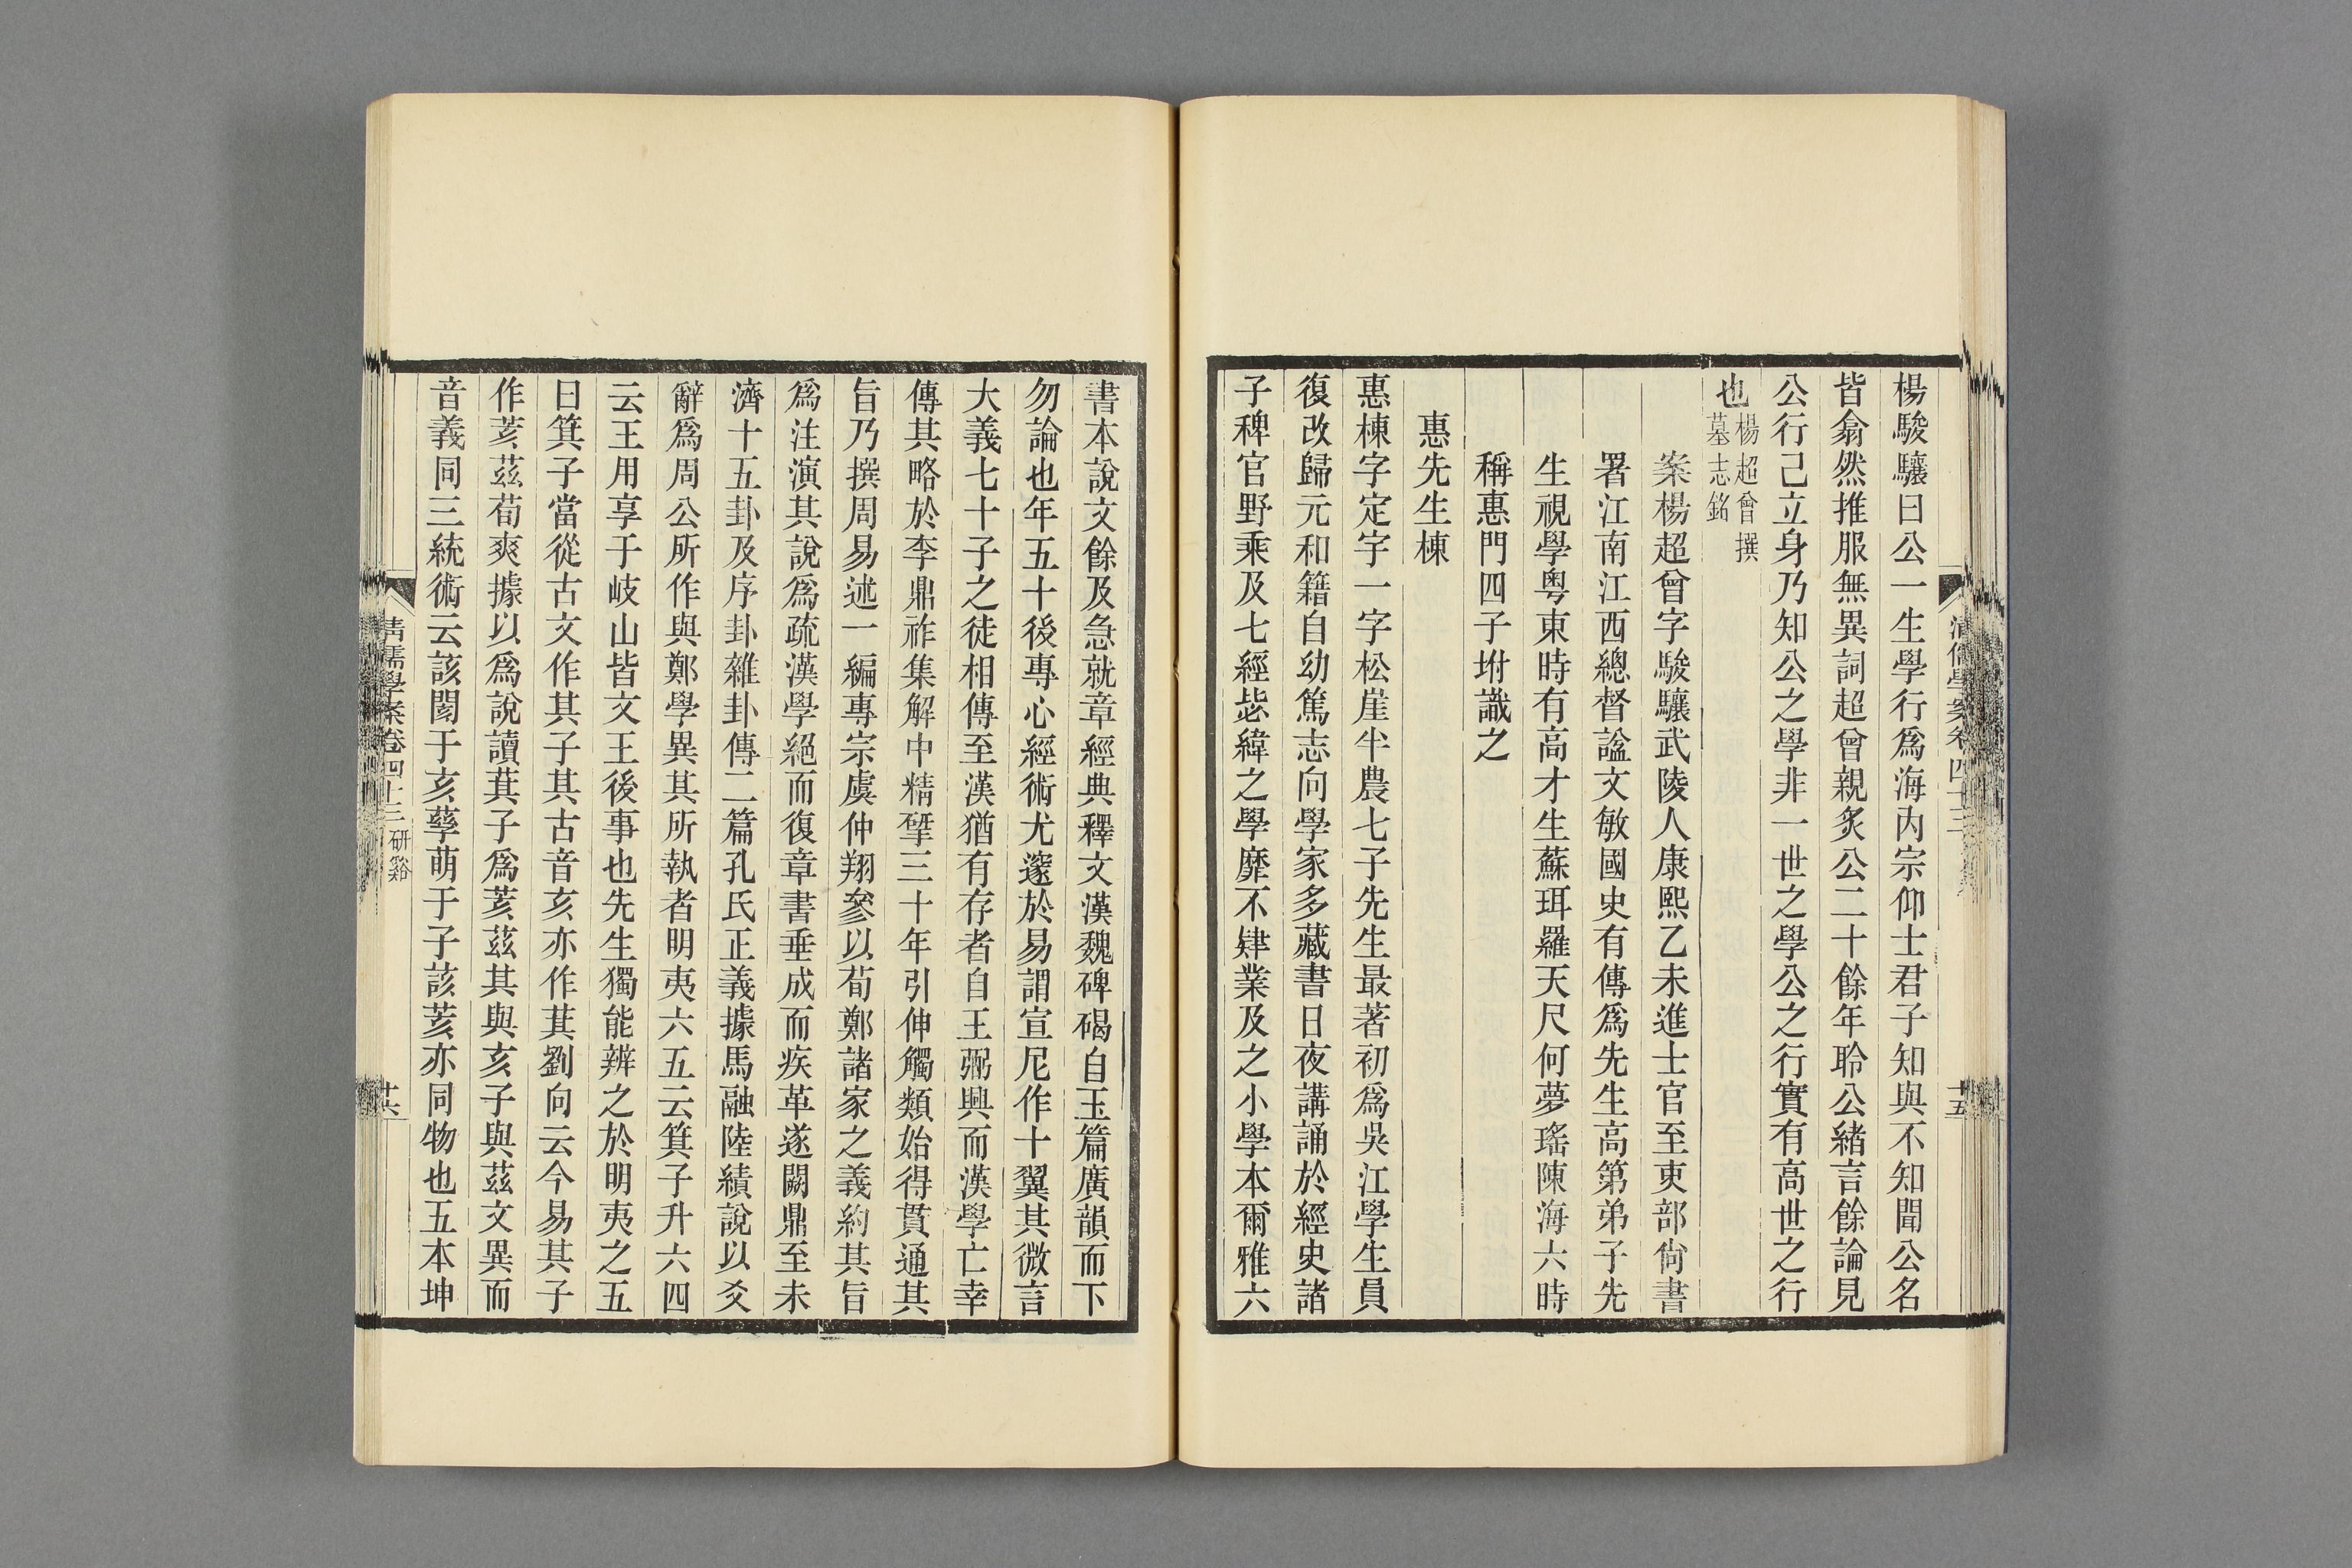 楊駿驤曰公一生學行爲海内宗仰士君子知與不知聞公名
皆翕然推服無異詞超曾親炙公二十餘年聆公緒言餘論見
公行己立身乃知公之學非一世之學公之行實有高世之行
也楊超曾撰墓志銘
案楊超曾字駿驤武陵人康熙乙未進士官至吏部尙書
署江南江西總督諡文敏國史有傳爲先生高第弟子先
生視學粤東時有高才生蘇珥羅天尺何夢瑤陳海六時
稱惠門四子坿識之
惠先生棟
惠棟字定宇一字松崖半農七子先生最著初爲吳江學生員
復改歸元和籍自幼篤志向學家多藏書日夜講誦於經史諸
子稗官野乘及七經毖緯之學靡不肄業及之小學本爾雅六
書本說文餘及急就章經典釋文漢魏碑碣自玉篇廣韻而下
勿論也年五十後專心經術尤邃於易謂宣尼作十翼其微言
大義七十子之徒相傳至漢猶有存者自王弼興而漢學亡幸
傳其略於李鼎祚集解中精揅三十年引伸觸類始得貫通其
旨乃撰周易述一編專宗虞仲翔參以荀鄭諸家之義約其旨
爲注演其說爲疏漢學絕而復章書垂成而疾革遂闕鼎至未
濟十五卦及序卦雜卦傳二篇孔氏正義據馬融陸績說以爻
辭爲周公所作與鄭學異其所執者明夷六五云箕子升六四
云王用享于岐山皆文王後事也先生獨能辨之於明夷之五
曰箕子當從古文作其子其古音亥亦作萁劉向云今易其子
作荄茲荀爽據以爲說讀萁子爲荄茲其與亥子與茲文異而
音義同三統術云該閡于亥孳萌于子該荄亦同物也五本坤
清儒學案卷四十三 研谿
十六
十五